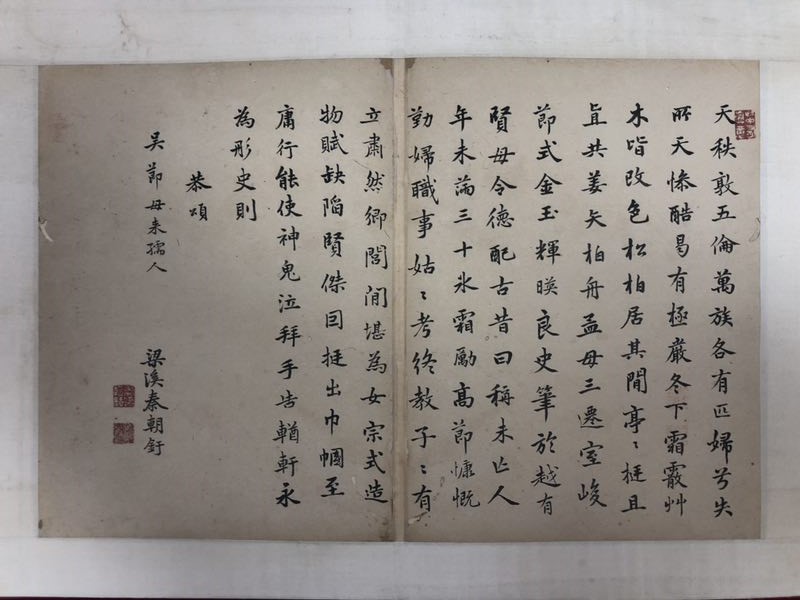 天秩敦五倫萬族各有匹婦兮失
所天慘酷曷有極嚴冬下霜霰艸
木皆改色松柏居其間亭〻挺且
直共姜矢柏舟孟母三遷室峻
節式金玉輝暎良史筆於越有
賢母令德配古昔曰稱未亡人
年未蒞三十氷霜勵高節慷慨
勤婦職事姑〻考終教子〻有
立肅然鄉閭間堪為女宗式造
物賦缺陷賢傑囙挺出巾幗至
庸行能使神鬼泣拜手告輶軒永
為彤史則
恭頌
吳節母来孺人
梁溪秦朝釪